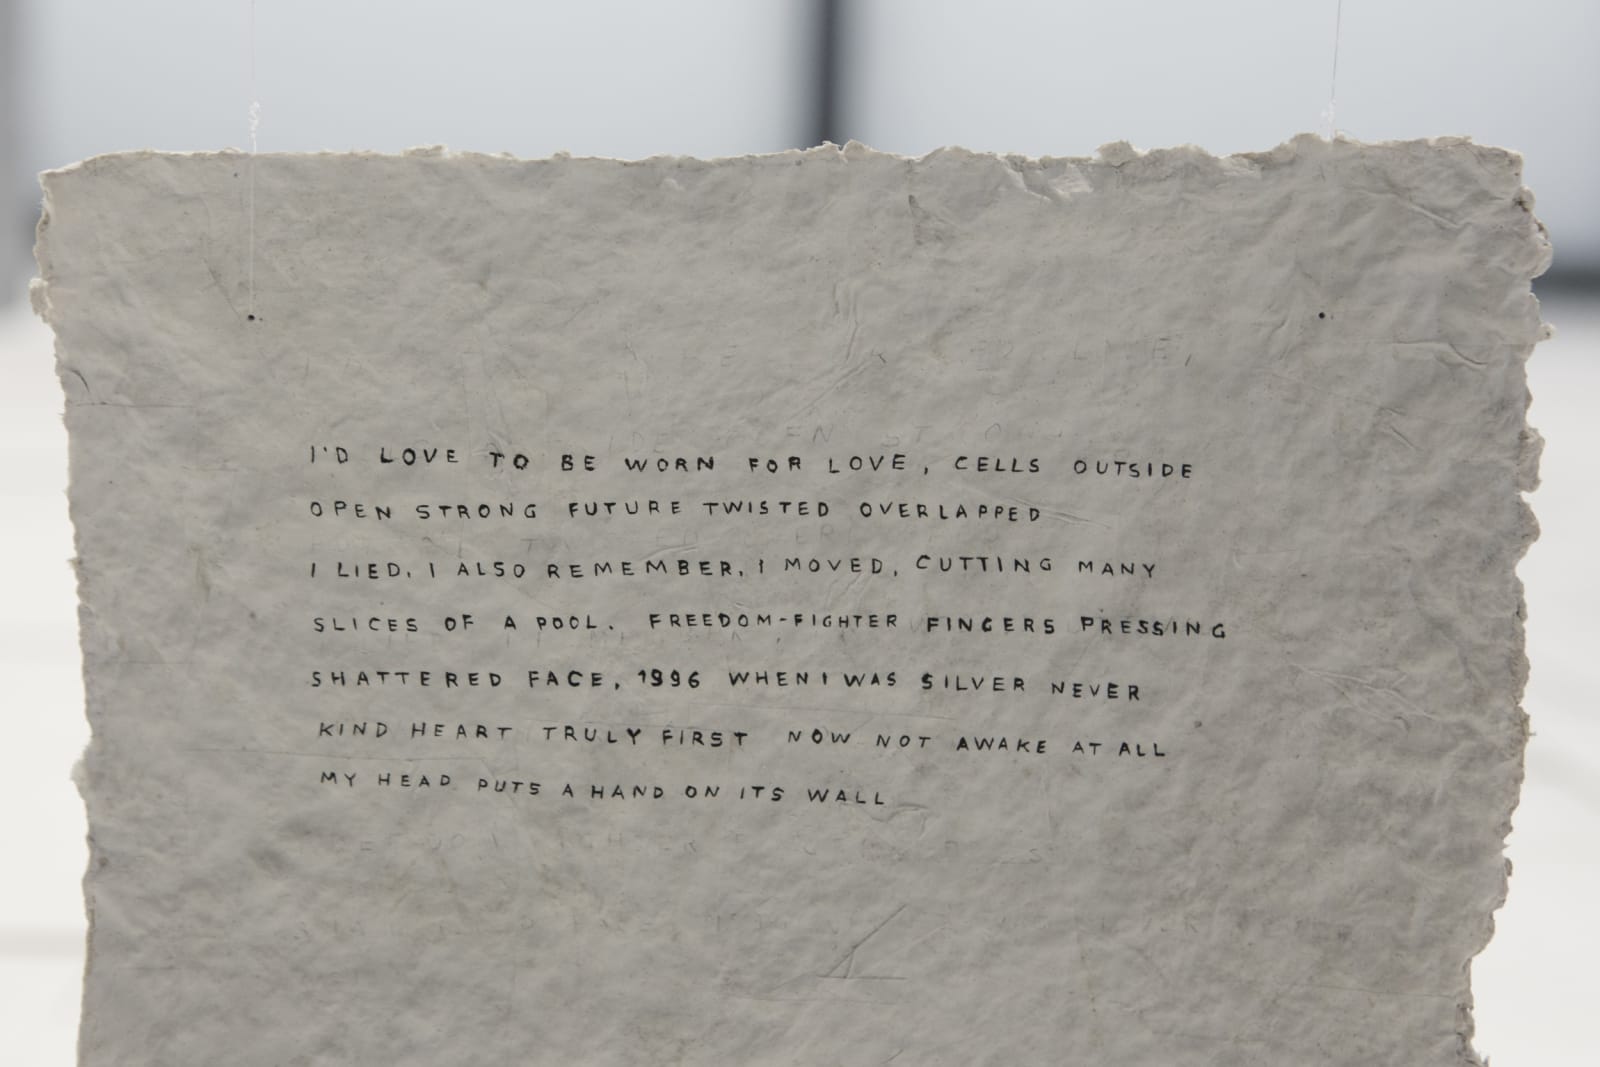 I'D LOVE TO BE WORN FOR LOVE, CELLS OUTSIDE
OPEN STRONG FUTURE TWISTED OVERLAPPED
I LIED, I ALSO REMEMBER, I MOVED, CUTTING MANY
SLICES OF A POOL. FREEDOM-FIGHTER FINGERS PRESSING
SHATTERED FACE, 1996 WHEN I WAS SILVER NEVER
KIND HEART TRULY FIRST NOW NOT AWAKE AT ALL
MY HEAD PUTS A HAND ON ITS WALL